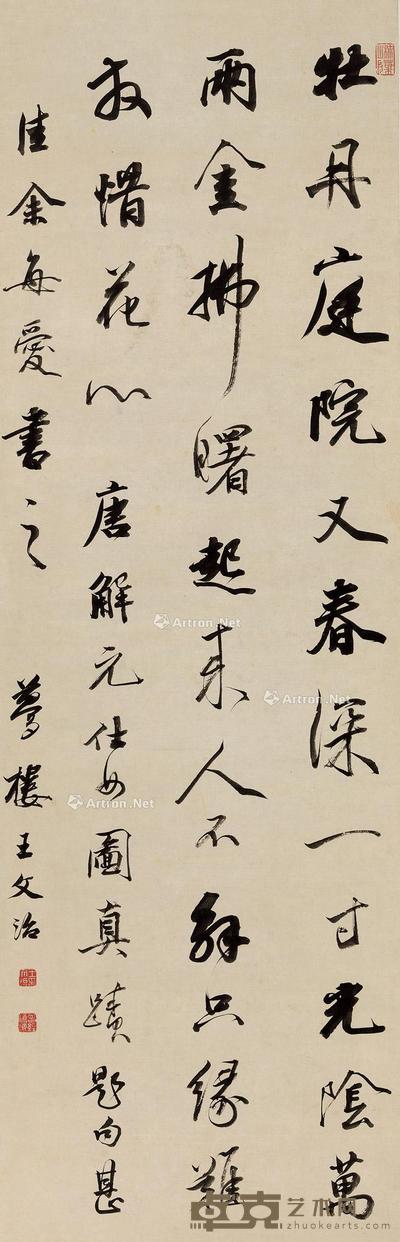 牡丹庭院又春深一寸光陰萬
兩金拂曙起来人不解只緣難
放惜花心 唐解元仕女圖真蹟題句甚
佳余每愛書之 夢樓王文治
Artron.Net
Artron.Net
Artron.Net
卓克艺术网
zhuokearts.com